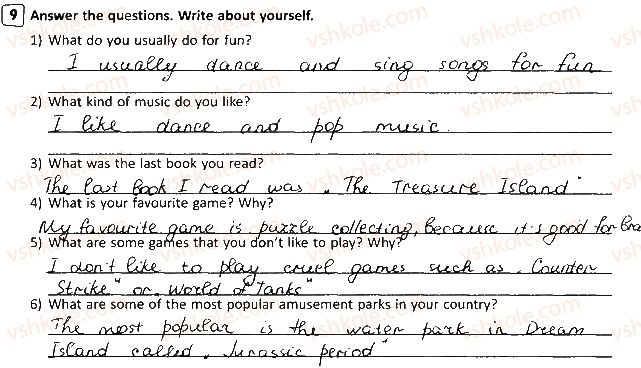 9 Answer the questions. Write about yourself.
1) What do you usually do for fun?
I usually dance and sing songs for fun
2) What kind of music do you like?
I like dance and pop music.
3) What was the last book you read?
The last book I read was „The Treasure Island"
4) What is your favourite game? Why?
My favourite game is puzzle collecting, because it's good for bra
5) What are some games that you don't like to play? Why?
I don't like to play cruel games such as „Counter
Strike" or „World of Tanks"
6) What are some of the most popular amusement parks in your country?
The most popular is the water park in Dream
Island called „Jurassic period"
vshkole.com